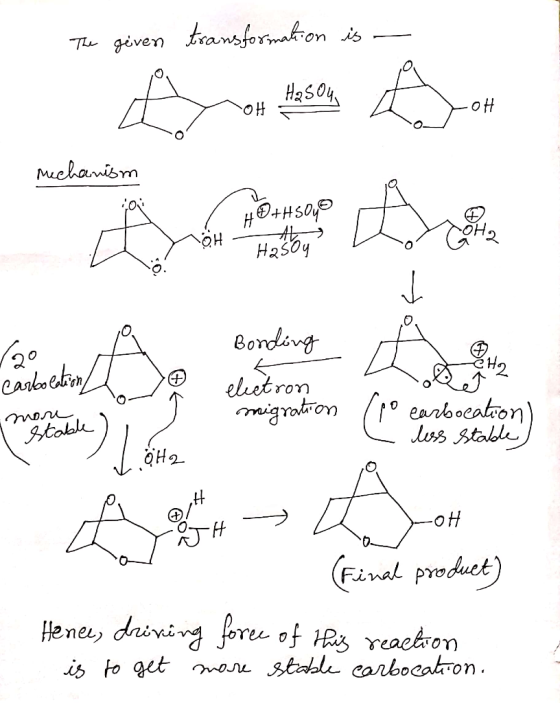 The given transformation is —
O
O
OH
H2SO4
O
O
OH
Mechanism
:O:
:O:
:OH
H⊕+HSO4⊖
H2SO4
O
O
⊕
OH2
O
O
⊕
CH2
(1° carbocation
less stable)
Bonding
electron
migration
O
O
⊕
(2°
carbocation
more
stable)
:OH2
O
O
⊕
O
H
H
O
O
OH
(Final product)
Hence, driving force of this reaction
is to get more stable carbocation.